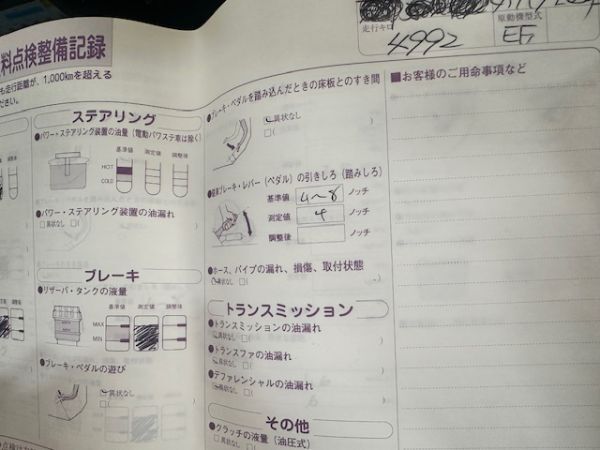 料点検整備記録
も走行距離が、1,000kmを超える
ださい。
走行キロ
4992
原動機型式
EF
ステアリング
●パワー・ステアリング装置の油量（電動パワステ車は除く）
基準値 測定値 調整後
HOT
COLD
●パワー・ステアリング装置の油漏れ
□異状なし □( )
ブレーキ
●リザーバ・タンクの液量
基準値 測定値 調整後
MAX
MIN
●ブレーキ・ペダルの遊び
異状なし
□( )
●ブレーキ・ペダルを踏み込んだときの床板とのすき間
異状なし
□( )
●駐車ブレーキ・レバー（ペダル）の引きしろ（踏みしろ）
基準値 4〜8 ノッチ
測定値 4 ノッチ
調整後 ノッチ
●ホース、パイプの漏れ、損傷、取付状態
異状なし □( )
トランスミッション
●トランスミッションの油漏れ
異状なし □( )
●トランスファの油漏れ
異状なし □( )
●デファレンシャルの油漏れ
異状なし □( )
その他
●クラッチの液量（油圧式）
□異状なし □(
■お客様のご用命事項など